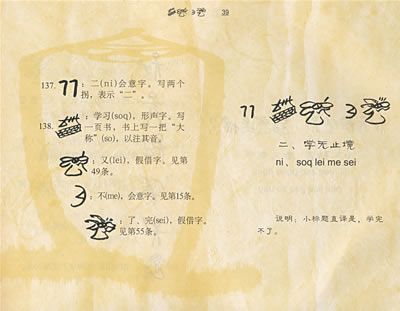 39
137. ：二(ni)会意字。写两个
拐，表示“二”。
138. ：学习(soq)，形声字。写
一页书，书上写一把“大
称”(so)，以注其音。
：又(lei)，假借字。见第
49条。
：不(me)，会意字。见第15条。
：了、完(sei)，假借字。
见第55条。
二、学无止境
ni、soq lei me sei
说明：小标题直译是，学完
不了。